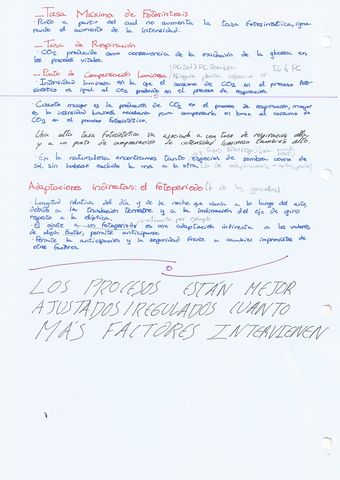 Tasa Máxima de Fotosíntesis
- Punto a partir del cual no aumenta la tasa fotosintética, igno-
rando el aumento de la intensidad.
Tasa de Respiración
- CO₂ producido como consecuencia de la oxidación de la glucosa en
los procesos vitales.
Punto de Compensación Luminosa
- Intensidad luminosa en la que el consumo de CO₂ en el proceso foto-
sintético es igual al CO₂ producido en el proceso de respiración.
- Cuanto mayor es la producción de CO₂ en el proceso de respiración, mayor
es la intensidad lumínica necesaria para compensarlo en base al consumo de
CO₂ en el proceso fotosintético.
Una alta tasa fotosintética va asociada a una tasa de respiración alta
y a un punto de compensación de intensidad luminosa también alto.
- En la naturaleza encontramos tanto especies de sombra como de
sol, sin haberse excluido la una a la otra
Adaptaciones indirectas: el fotoperiodo
- Longitud relativa del día y de la noche que varía a lo largo del año
debido a la traslación terrestre y a la inclinación del eje de giro
respecto a la elíptica.
- El ajuste a un fotoperiodo es una adaptación indirecta a los valores
de algún factor, permite anticiparse.
- Permite la anticipación y la seguridad frente a cambios imprevistos de
otros factores.
LOS PROCESOS ESTÁN MEJOR
AJUSTADOS/REGULADOS CUANTO
MÁS FACTORES INTERVIENEN